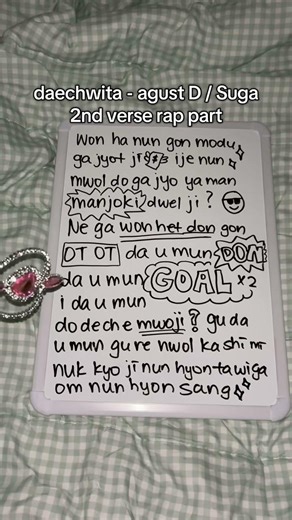 daechwita - agust D / Suga
2nd verse rap part
Won ha nun gon modu
ga jyot ije nun
mwol do ga jyo ya man
manjoki dwel ji ? 😎
Ne ga won het don gon
OT OT da u mun DON
da u mun GOAL x2
i da u mun
do de che mwoji ? gu da
u mun gu re nwol ka shi
nuk kyo ji nun hyon-ta wi ga
om nun hyon sang